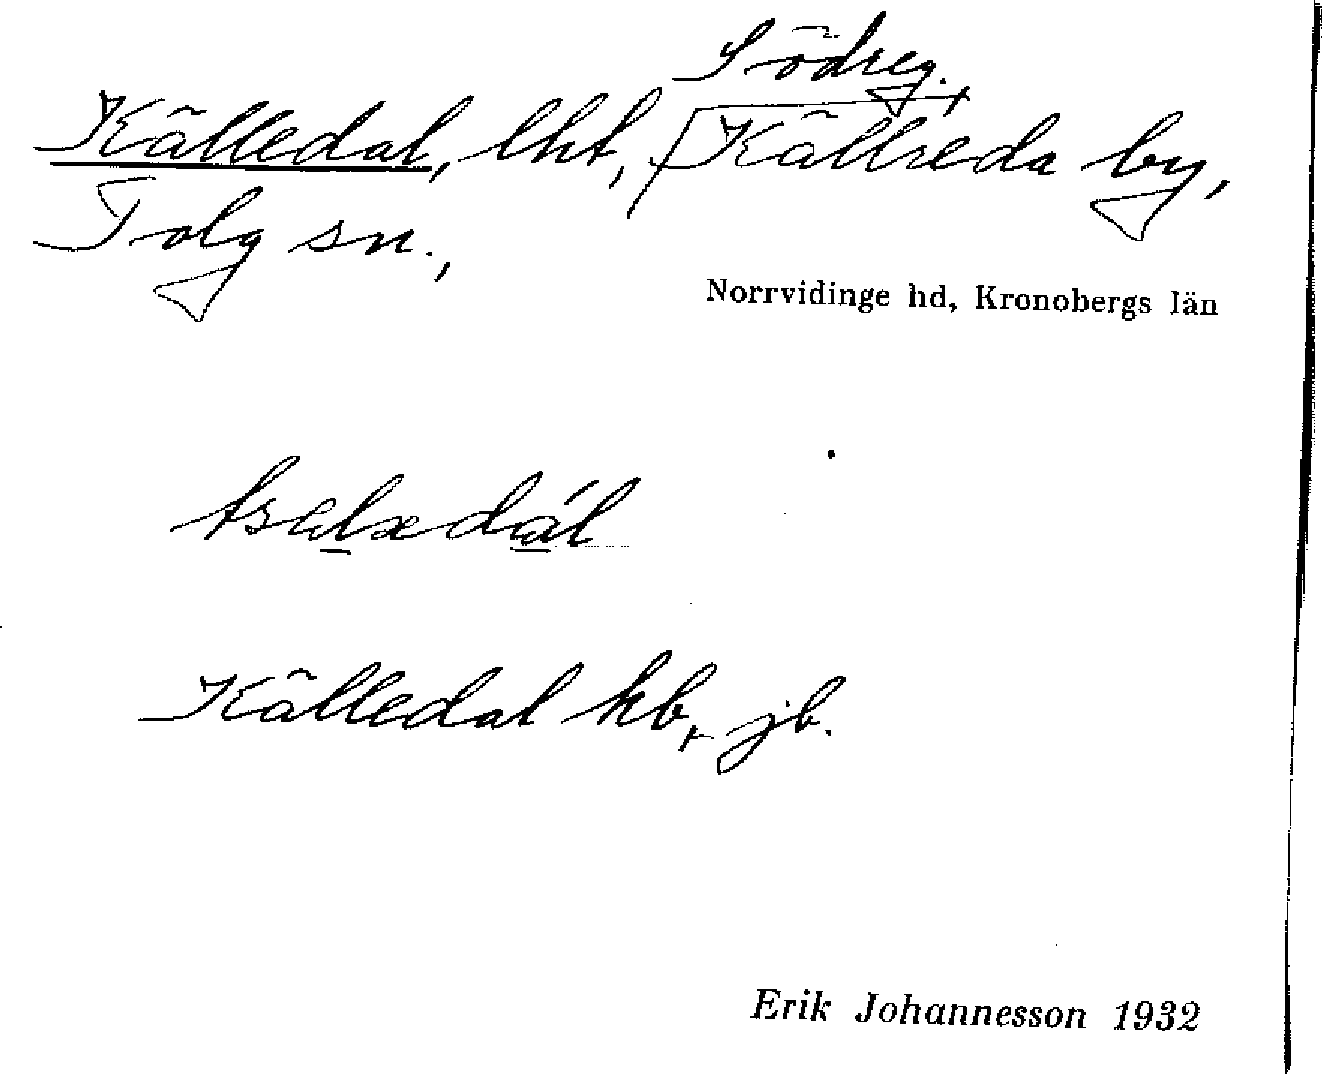 Södreg.
Källedal, lht, Källreda by,
Tolg sn.,
Norrvidinge hd, Kronobergs län
Källedal kb, jb.
Erik Johannesson 1932